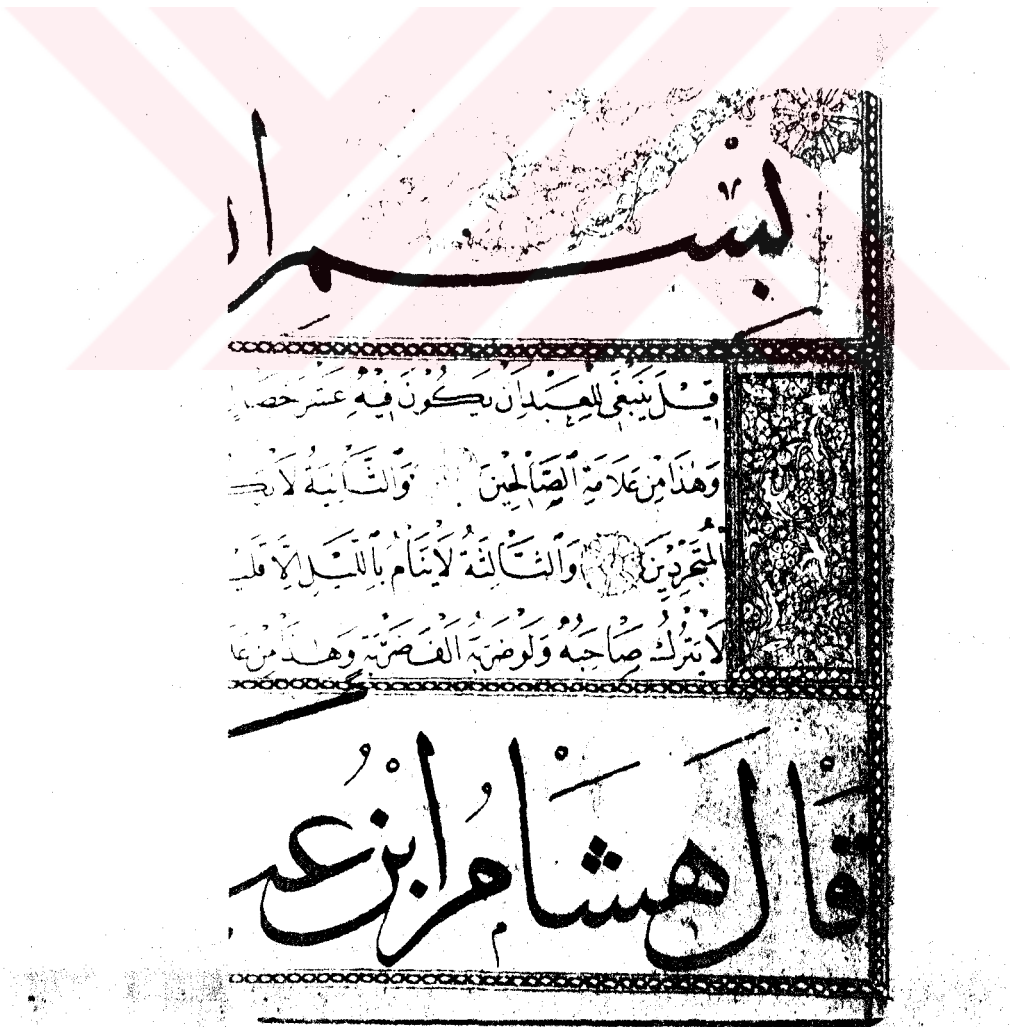 بِسْمِ ا
قِيلَ يَنْبَغِى لِلْعَبْدِ اَنْ يَكُونَ فِيهِ عَشْرَ
وَهٰذَا مِنْ عَلَامَةِ الصَّالِحِينَ وَالثَّانِيَةُ لَا
الْمُتَجَرِّدِينَ وَالثَّالِثَةُ لَا يَنَامُ بِاللَّيْلِ اِلَّا
لَا يَتْرُكُ صَاحِبَهُ وَلَوْ ضَرَبَهُ وَهٰذَا مِنْ
قَالَ هِشَامُ ابْنُ